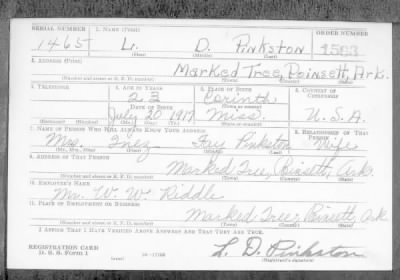 SERIAL NUMBER 1. NAME (Print) ORDER NUMBER
1465 L. D. Pinkston 1563
(First) (Middle) (Last)
2. ADDRESS (Print)
Marked Tree, Poinsett, Ark.
(Number and street or R. F. D. number) (Town) (County) (State)
3. TELEPHONE 4. AGE IN YEARS 5. PLACE OF BIRTH 6. COUNTRY OF CITIZENSHIP
22 Corinth
DATE OF BIRTH (Town or county)
July 20 1917 Miss. U.S.A.
(Exchange) (No.) (Mo.) (Day) (Yr.) (State or country)
7. NAME OF PERSON WHO WILL ALWAYS KNOW YOUR ADDRESS 8. RELATIONSHIP OF THAT PERSON
Mrs. Inez Fay Pinkston Wife
(Mr., Mrs., Miss) (First) (Middle) (Last)
9. ADDRESS OF THAT PERSON
Marked Tree, Poinsett, Ark.
(Number and street or R. F. D. number) (Town) (County) (State)
10. EMPLOYER'S NAME
Mr. W. W. Riddle
11. PLACE OF EMPLOYMENT OR BUSINESS
Marked Tree, Poinsett, Ark
(Number and street or R. F. D. number) (Town) (County) (State)
I AFFIRM THAT I HAVE VERIFIED ABOVE ANSWERS AND THAT THEY ARE TRUE.
REGISTRATION CARD
D. S. S. Form 1 L. D. Pinkston
(Registrant's signature)